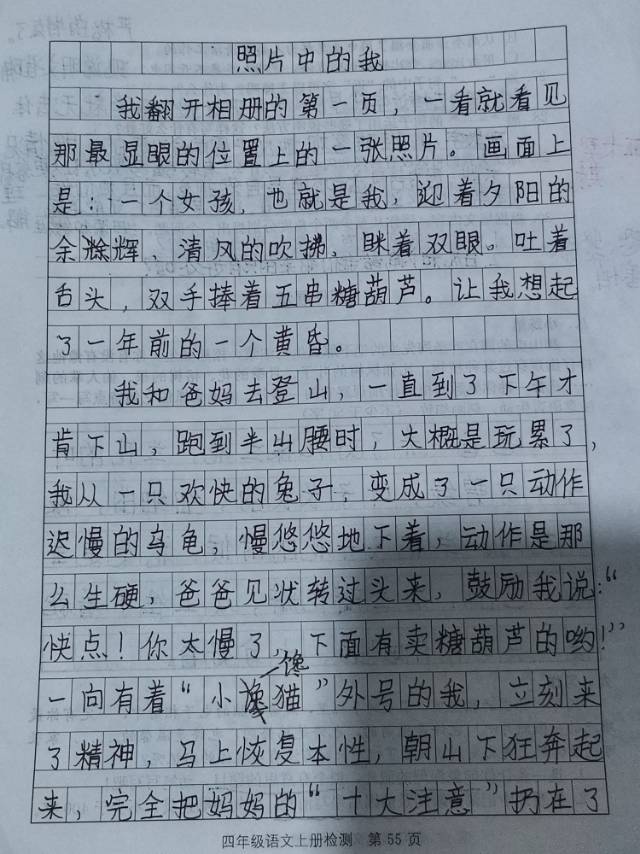 照片中的我
我翻开相册的第一页，一看就看见
那最显眼的位置上的一张照片。画面上
是：一个女孩，也就是我，迎着夕阳的
余辉、清风的吹拂，眯着双眼。吐着
舌头，双手捧着五串糖葫芦。让我想起
了一年前的一个黄昏。
我和爸妈去登山，一直到了下午才
肯下山，跑到半山腰时，大概是玩累了，
我从一只欢快的兔子，变成了一只动作
迟慢的乌龟，慢悠悠地下着，动作是那
么生硬，爸爸见状转过头来，鼓励我说：“
快点！你太慢了，下面有卖糖葫芦的哟！”
一向有着“小馋猫”外号的我，立刻来
了精神，马上恢复本性，朝山下狂奔起
来，完全把妈妈的“十大注意”扔在了
四年级语文上册检测 第55页